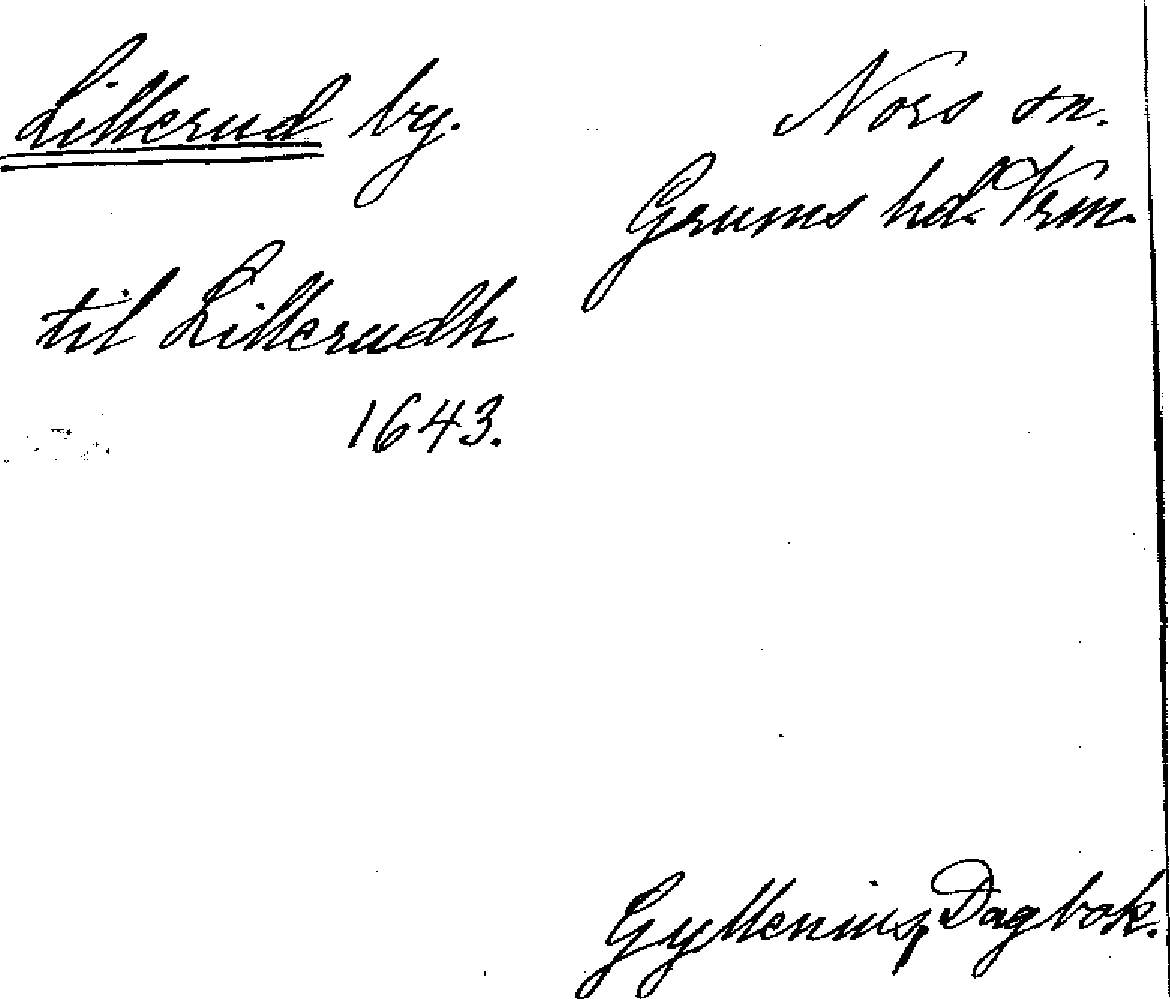 Lillerud by.
Nors sn.
Grums hd. Vrm.
til Lillerudh
1643.
Gyllenius, Dagbok.